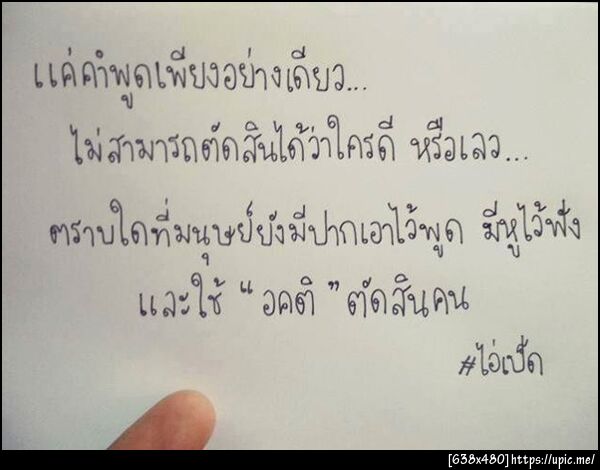 แค่คำพูดเพียงอย่างเดียว...
ไม่สามารถตัดสินได้ว่าใครดี หรือเลว...
ตราบใดที่มนุษย์ยังมีปากเอาไว้พูด มีหูไว้ฟัง
และใช้ "อคติ" ตัดสินคน
#ไอ่เป็ด
[638x480]https://upic.me/